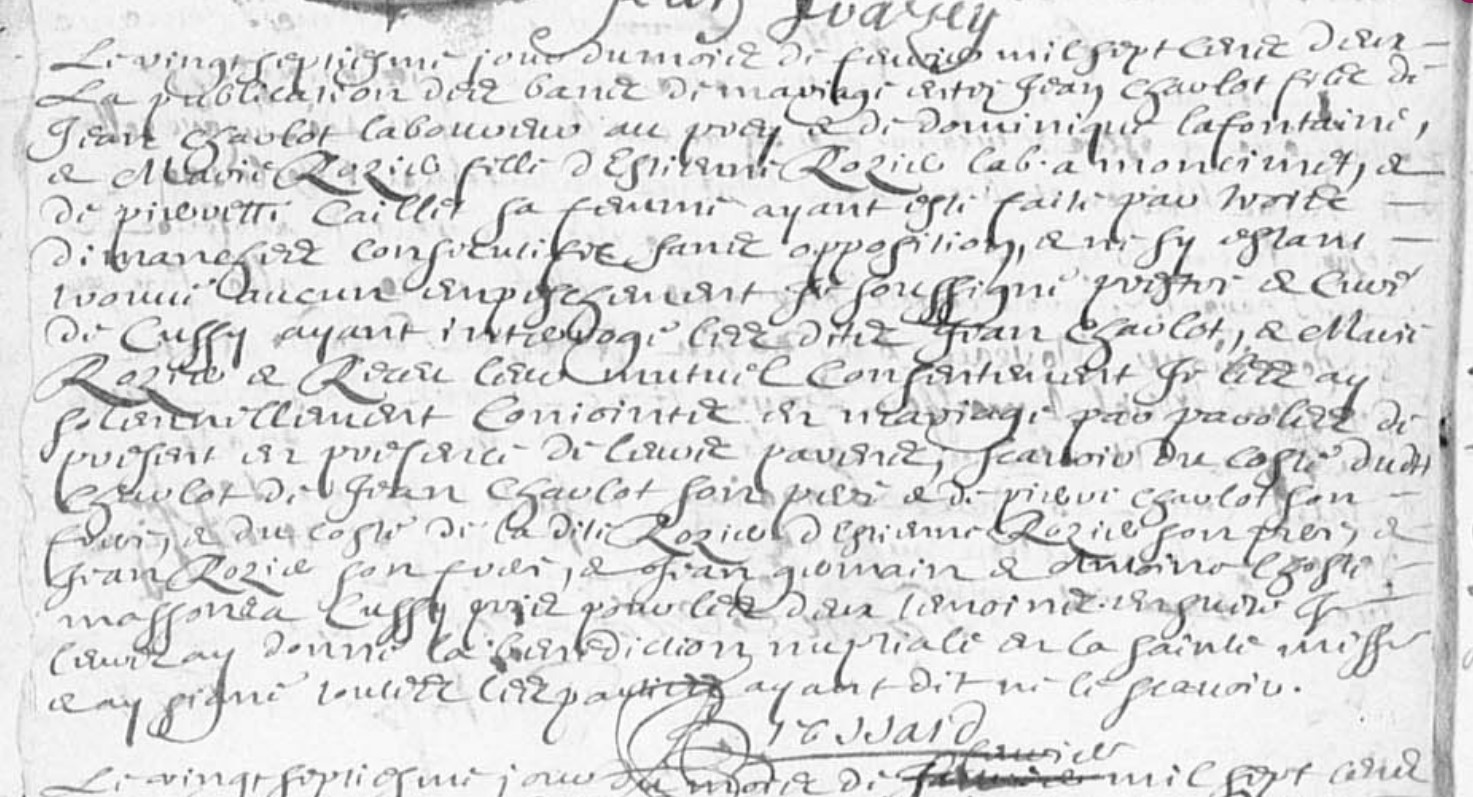 Le vingt septiesme jour du mois de fevrier mil sept cent deux
La publication des bancs de mariage entre Jean Charlot fils de
Jean Charlot laboureur au & de dominique lafontaine,
& Marie Rozier fille d'Estienne Rozier lab. a moncimet, &
de pierrette Caillet sa femme ayant esté faite par trois
dimanches consecutifs sans opposition, & ne sy estant
trouvé aucun enpeschement Je soussigné prestre & Curé
de Cussy ayant interrogé les dits Jean Charlot, & Marie
Rozier & Receu leur mutuel Consentement Je les ay
solennellement Conjoints en mariage par paroles de
present en presence de leurs parens, scavoir du costé dudit
Charlot de Jean Charlot son pere & de pierre Charlot son
frere, & du costé de la dite Rozier d'Estienne Rozier son pere, &
Jean Rozier son frere, & Jean germain & Antoine
massons a Cussy pris pour les deux temoins. ensuite Je
leurs ay donné la benediction nuptiale en la sainte messe
& ay signé toutes les parties ayant dit ne le scavoir.
fevrier
Le vingt septiesme jour du mois de mil sept cent